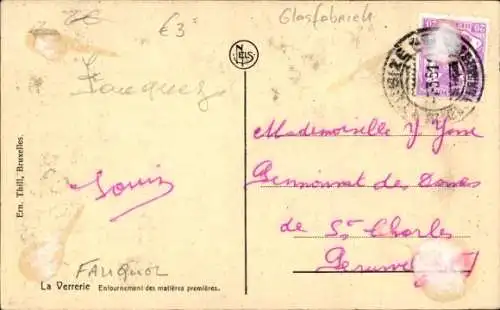 €3
Glasfabriek
Fauquez
NELS
Ern. Thill, Bruxelles.
Louis
FAUQUEZ
La Verrerie Enfournement des matières premières.
Mademoiselle Y
Pensionnat des Dames
de St Charles